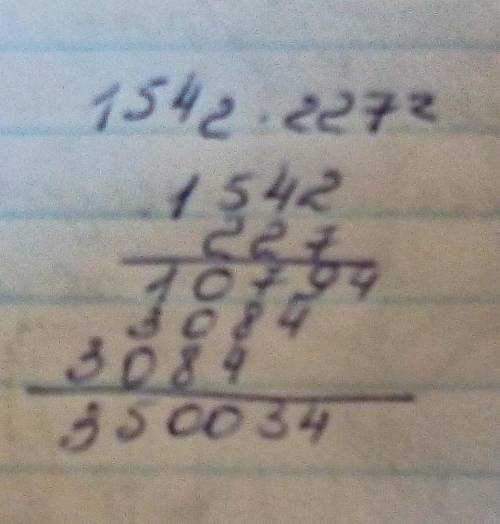 1542 · 227=
1542
227
10794
3084
3084
350034